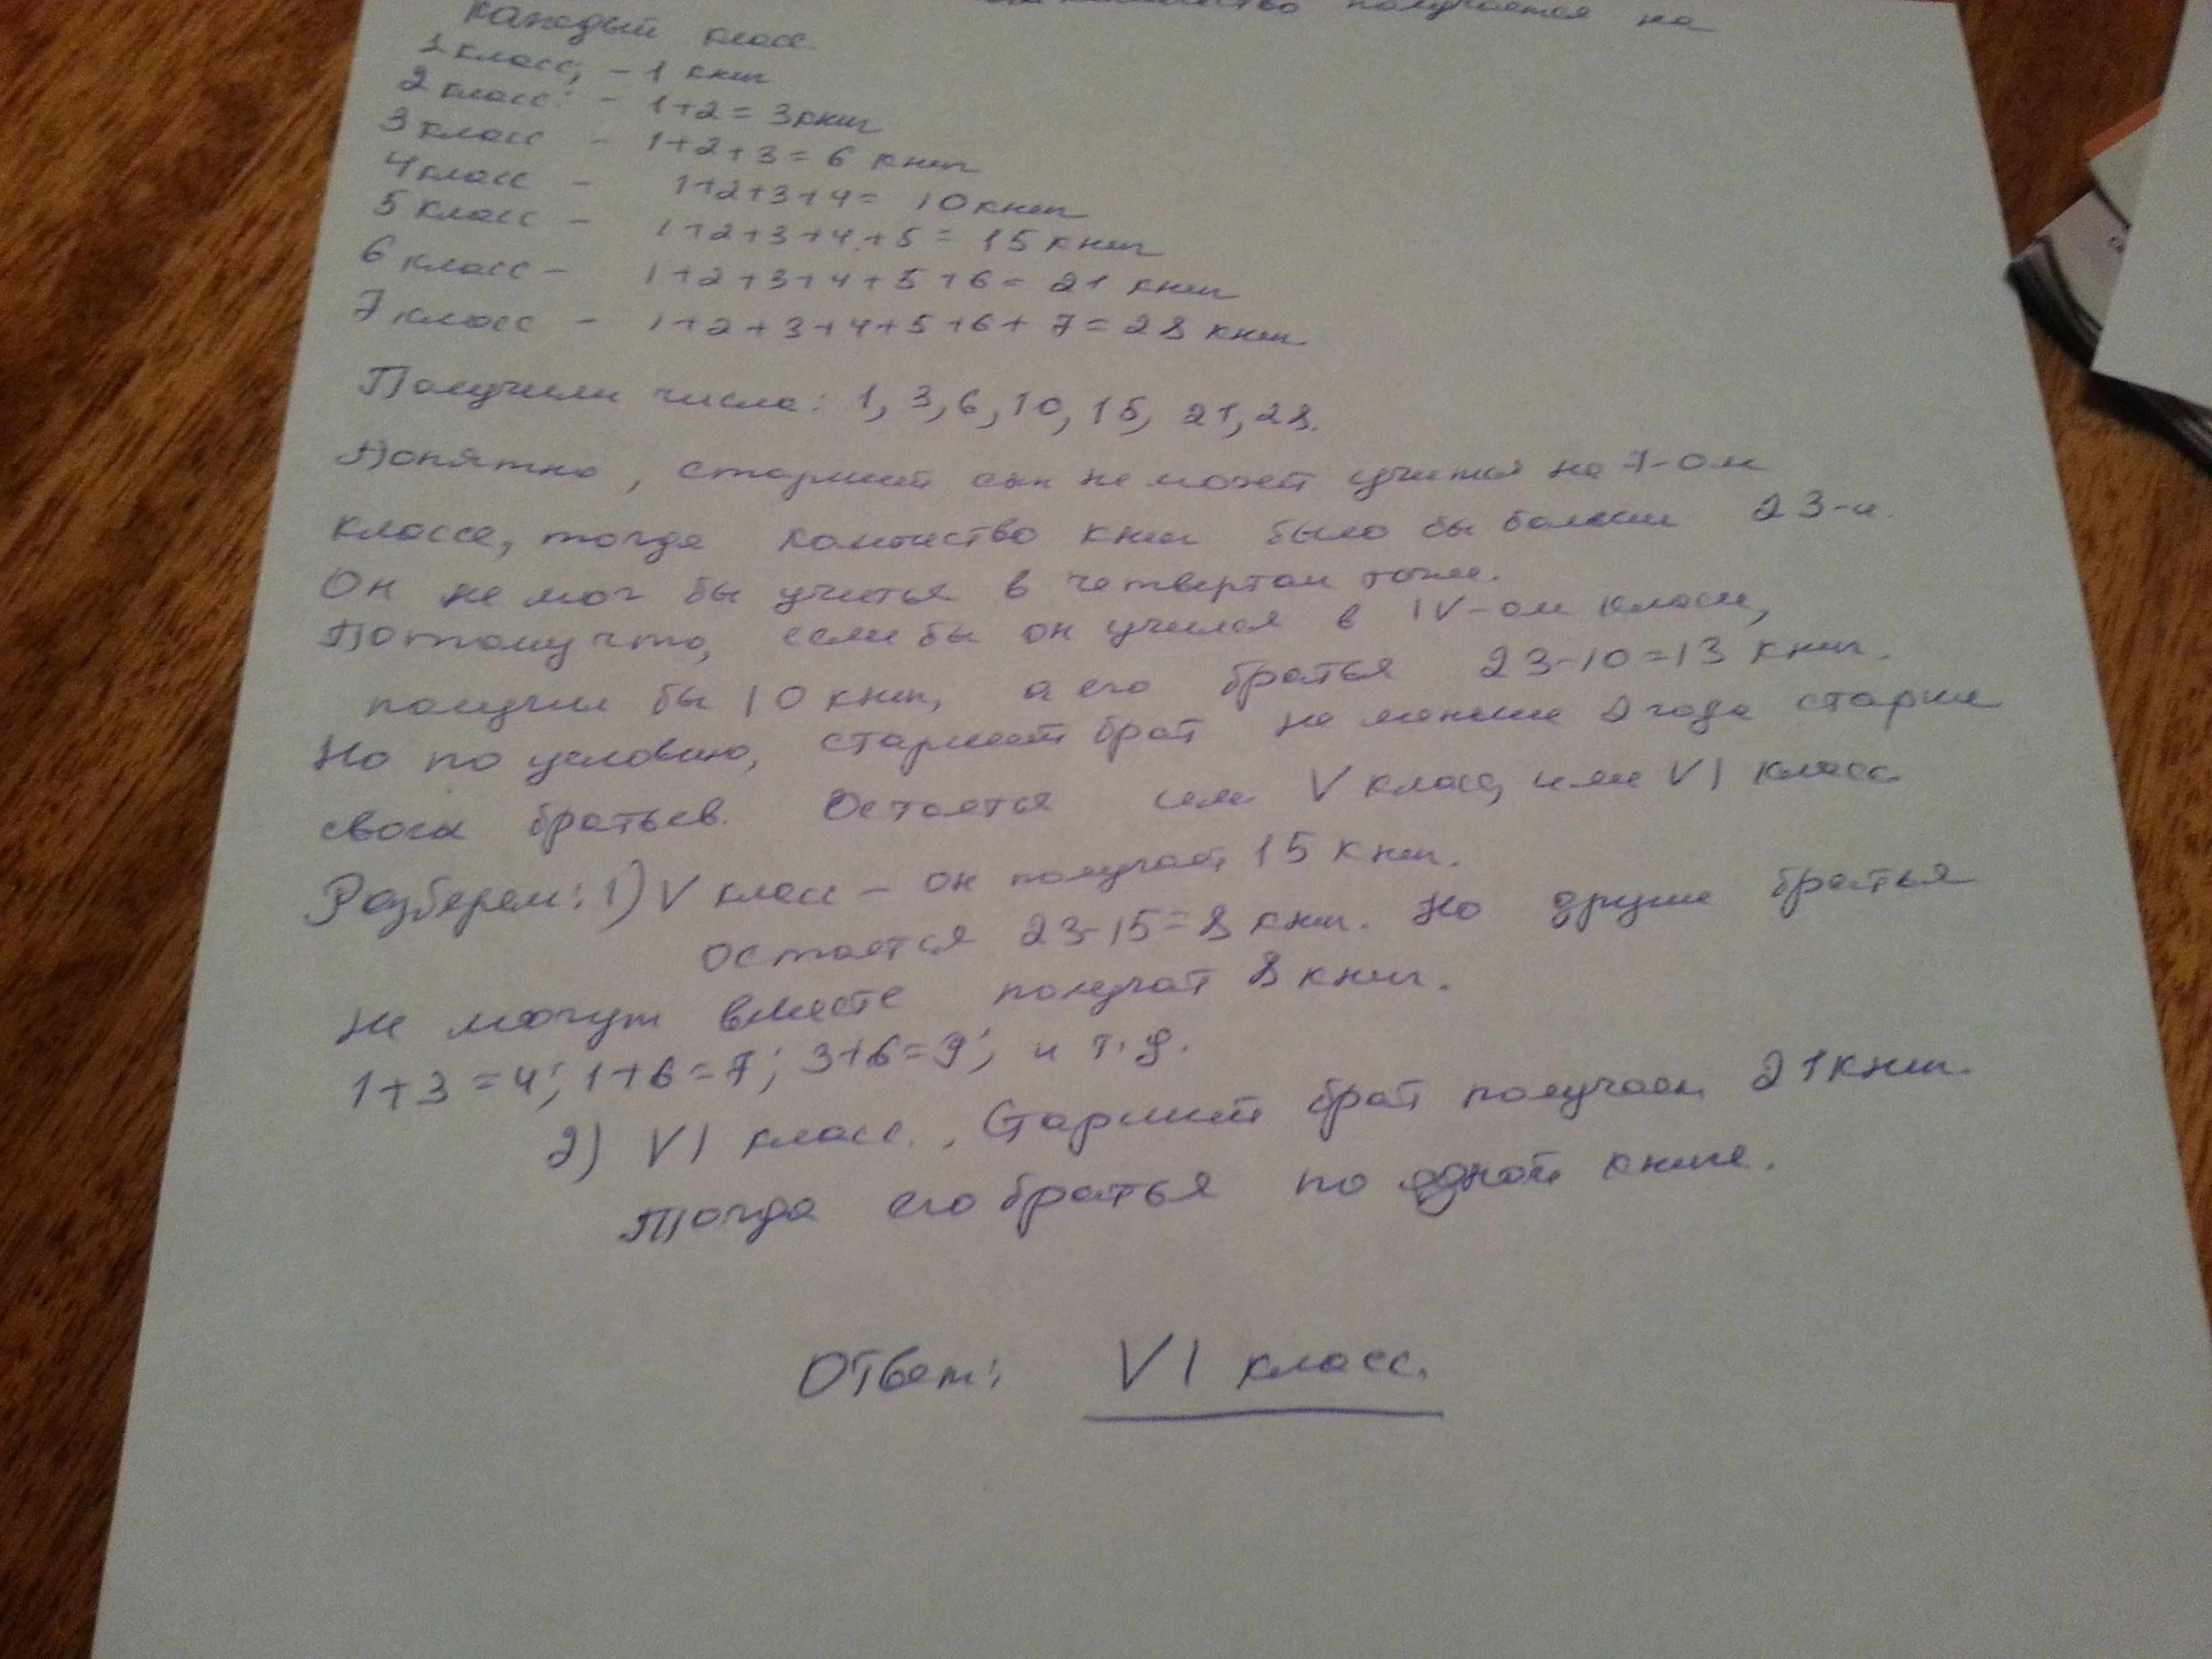 получается на
каждый класс
1 класс, - 1 книг
2 класс: - 1+2 = 3 книг
3 класс - 1+2+3 = 6 книг
4 класс - 1+2+3+4 = 10 книг
5 класс - 1+2+3+4+5 = 15 книг
6 класс - 1+2+3+4+5+6 = 21 книг
7 класс - 1+2+3+4+5+6+7 = 28 книг
Получили числа: 1, 3, 6, 10, 15, 21, 28.
Понятно, старший сын не может учится на 7-ом
классе, тогда количество книг было бы больше 23-и.
Он не мог бы учиться в четвертом тоже.
Потому что, если бы он учился в IV-ом классе,
получил бы 10 книг, а его братья 23-10=13 книг.
Но по условию, старший брат не меньше 2 года старше
своих братьев. Остается или V класс, или VI класс.
Разберем: 1) V класс - он получает 15 книг.
Остается 23-15=8 книг. Но другие братья
не могут вместе получат 8 книг.
1+3=4; 1+6=7; 3+6=9; и т.д.
2) VI класс. Старший брат получает 21 книг.
Тогда его братья по одной книге.
Ответ: VI класс.